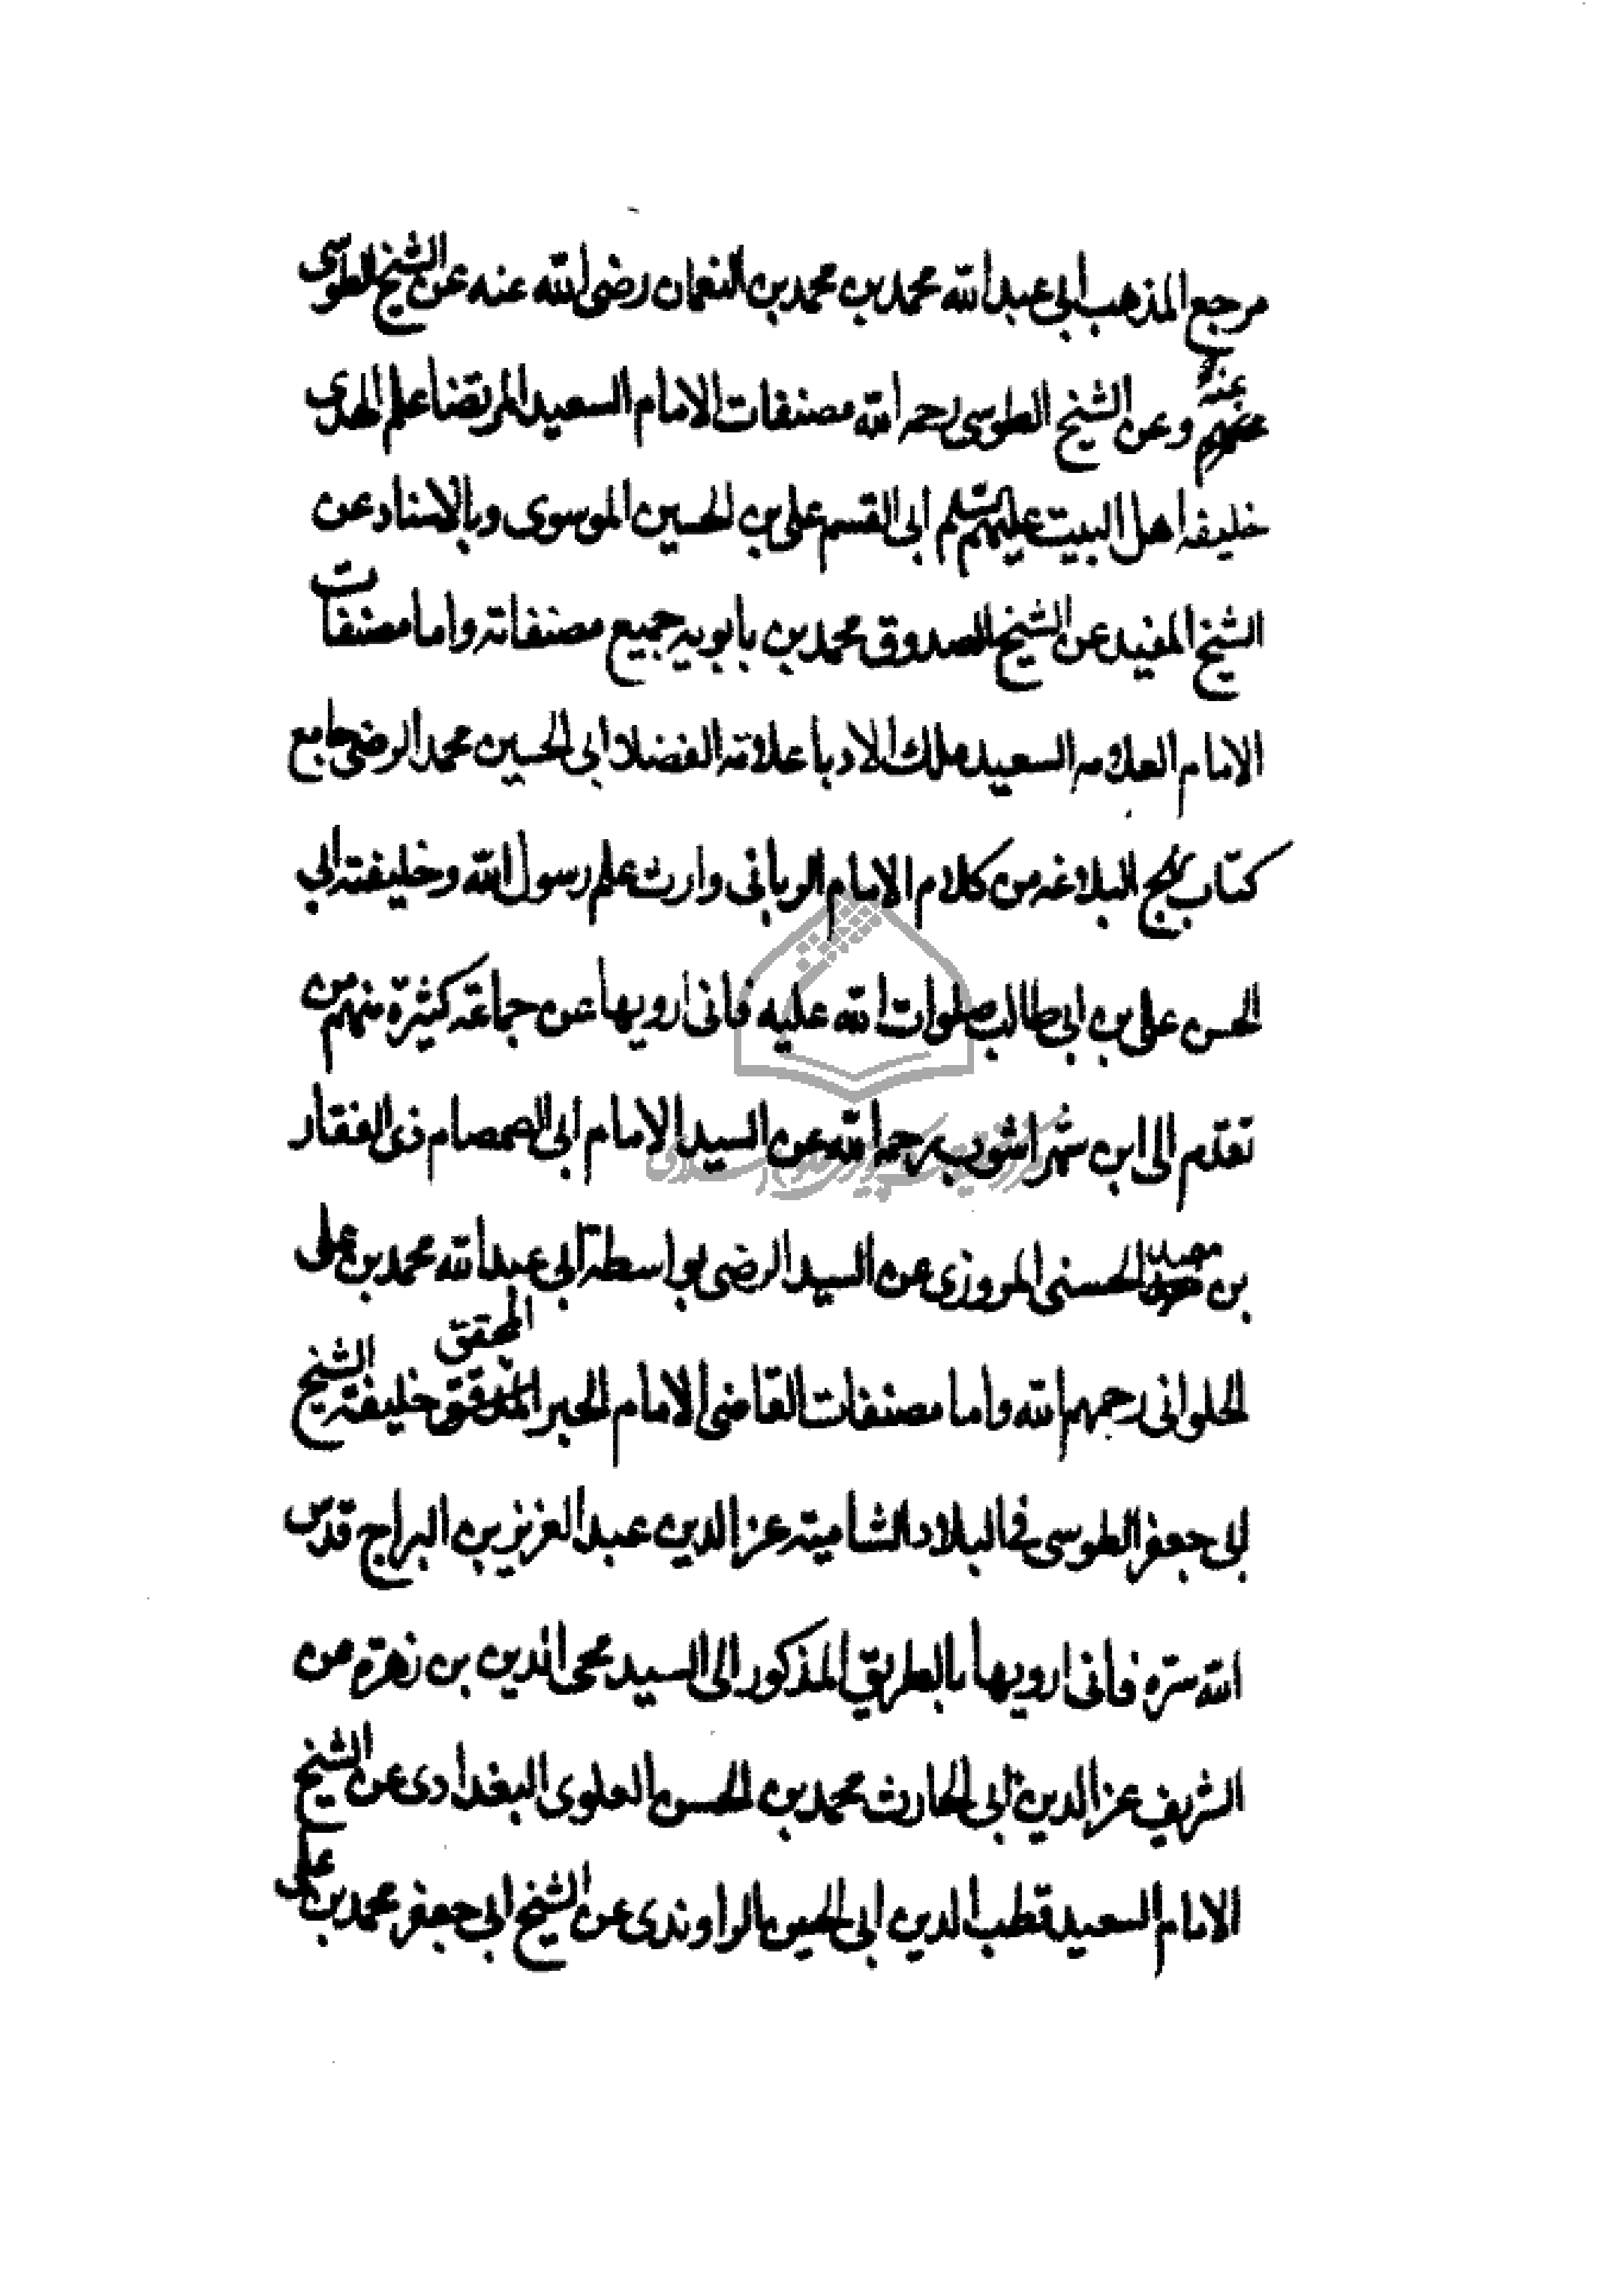 مرجع المذهب ابى عبد الله محمد بن محمد بن النعمان رضى الله عنه عن الشيخ الطوسى
عنه وعن الشيخ الطوسى رحمه الله مصنفات الامام السعيد المرتضا علم الهدى
خليفه اهل البيت عليهم السلم ابى القسم على بن الحسين الموسوى وبالاسناد عن
الشيخ المفيد عن الشيخ الصدوق محمد بن بابويه جميع مصنفاته واما مصنفات
الامام العلامه السعيد ملك الادبا علامة الفضلا ابى الحسين محمد الرضى جامع
كتاب نهج البلاغه من كلام الامام الربانى وارث علم رسول الله وخليفته ابى
الحسن على بن ابى طالب صلوات الله عليه فانى ارويها عن جماعة كثيرة منهم من
تقدم الى ابن شهراشوب رحمه الله عن السيد الامام ابى الصمصام ذى الفقار
بن معبد الحسنى المروزى عن السيد الرضى بواسطة ابى عبد الله محمد بن على
الحلوانى رحمهم الله واما مصنفات القاضى الامام الحبر المحقق خليفة الشيخ
ابى جعفر الطوسى فى البلاد الشامية عز الدين عبد العزيز بن البراج قدس
الله سره فانى ارويها بالطريق المذكور الى السيد محى الدين بن زهرة عن
الشريف عز الدين ابى الحارث محمد بن الحسن العلوى البغدادى عن الشيخ
الامام السعيد قطب الدين ابى الحسين الراوندى عن الشيخ ابى جعفر محمد بن على